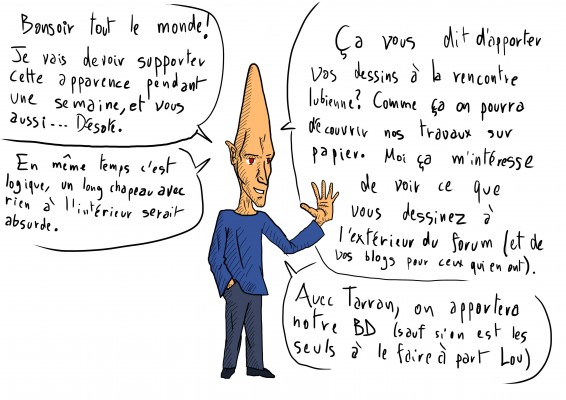 Bonsoir tout le monde!
Je vais devoir supporter
cette apparence pendant
une semaine, et vous
aussi... Désolé.
En même temps c'est
logique, un long chapeau avec
rien à l'intérieur serait
absurde.
Ça vous dit d'apporter
vos dessins à la rencontre
lubienne? Comme ça on pourra
découvrir nos travaux sur
papier. Moi ça m'intéresse
de voir ce que
vous dessinez à
l'extérieur du forum (et de
vos blogs pour ceux qui en ont).
Avec Tarran, on apportera
notre BD (sauf si on est les
seuls à le faire à part Lou)